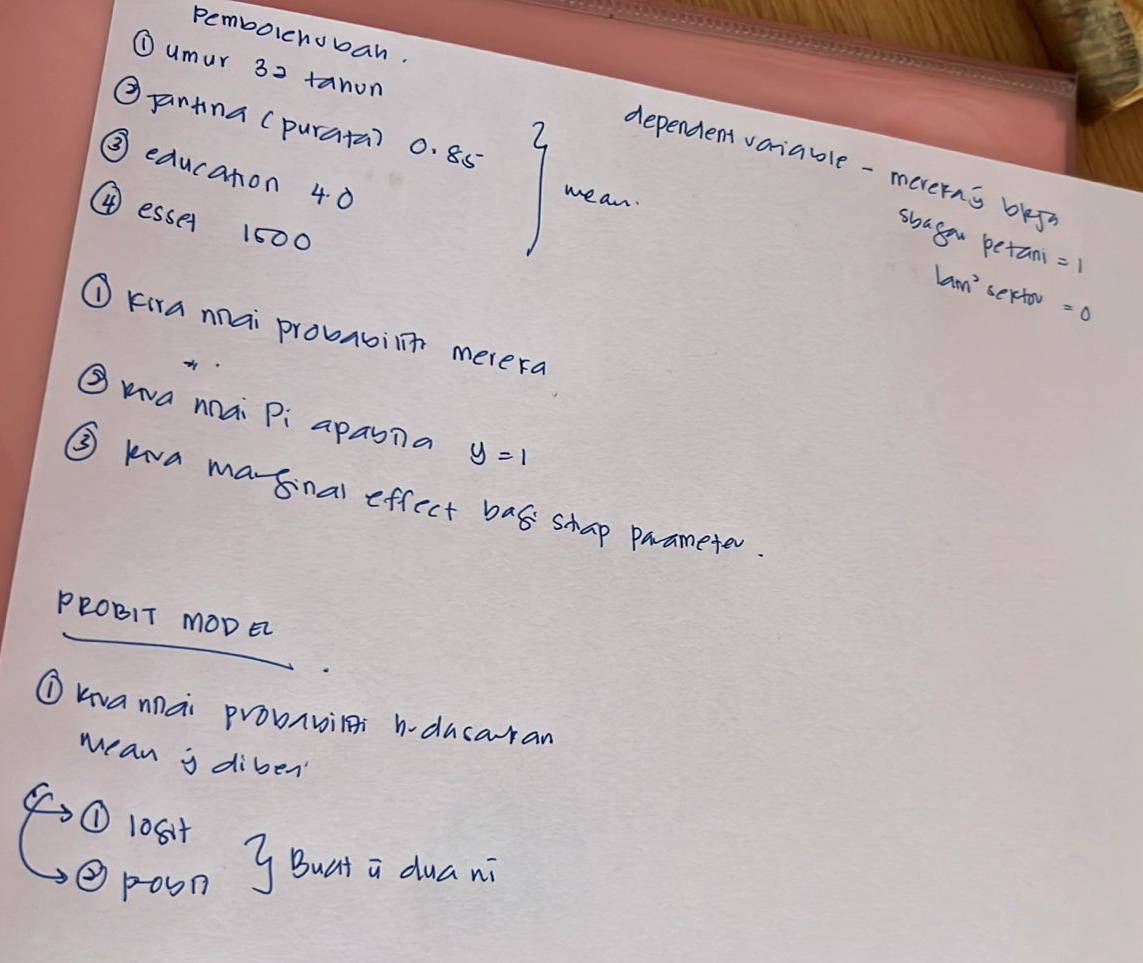 Pembolehubah.
① umur 32 tahun
② Jantina (purata) 0.85
③ education 4.0
④ esset 1500
} mean.
dependent variable - mereka yg bkrja
sbagai petani = 1
lain² sektor = 0
① Kira nilai probabiliti mereka
② kira nilai Pi apabila y = 1
③ kira marginal effect bagi stiap parameter.
PROBIT MODEL
① kira nilai probabiliti b-dasarkan
mean yg diberi
① logit
② probit
} Buat u dua ni